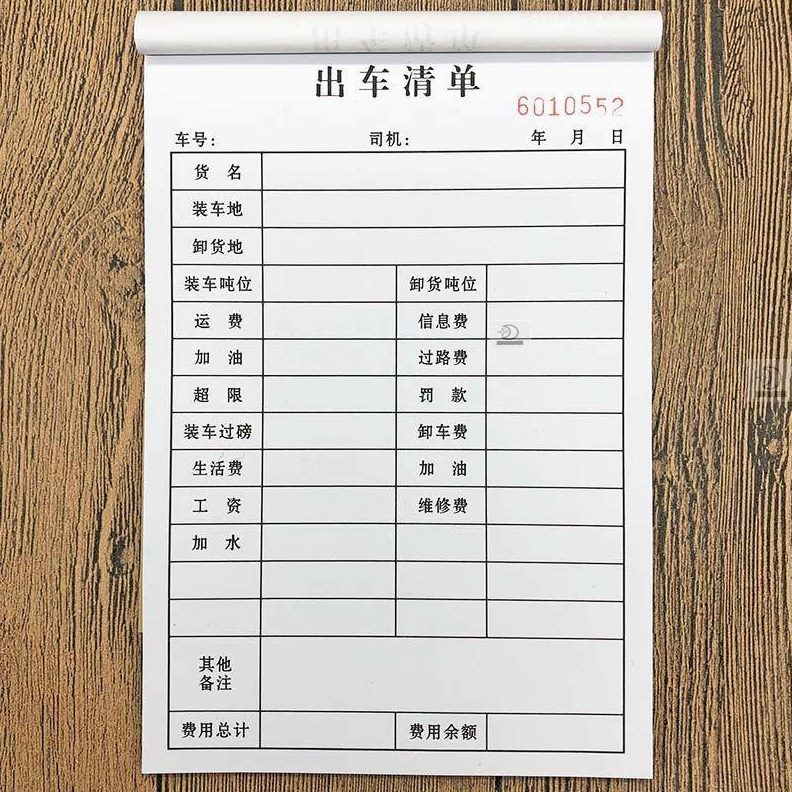 出车清单
6010552
车号： 司机： 年 月 日
货 名
装车地
卸货地
装车吨位 卸货吨位
运 费 信息费
加 油 过路费
超 限 罚 款
装车过磅 卸车费
生活费 加 油
工 资 维修费
加 水
其他
备注
费用总计 费用余额